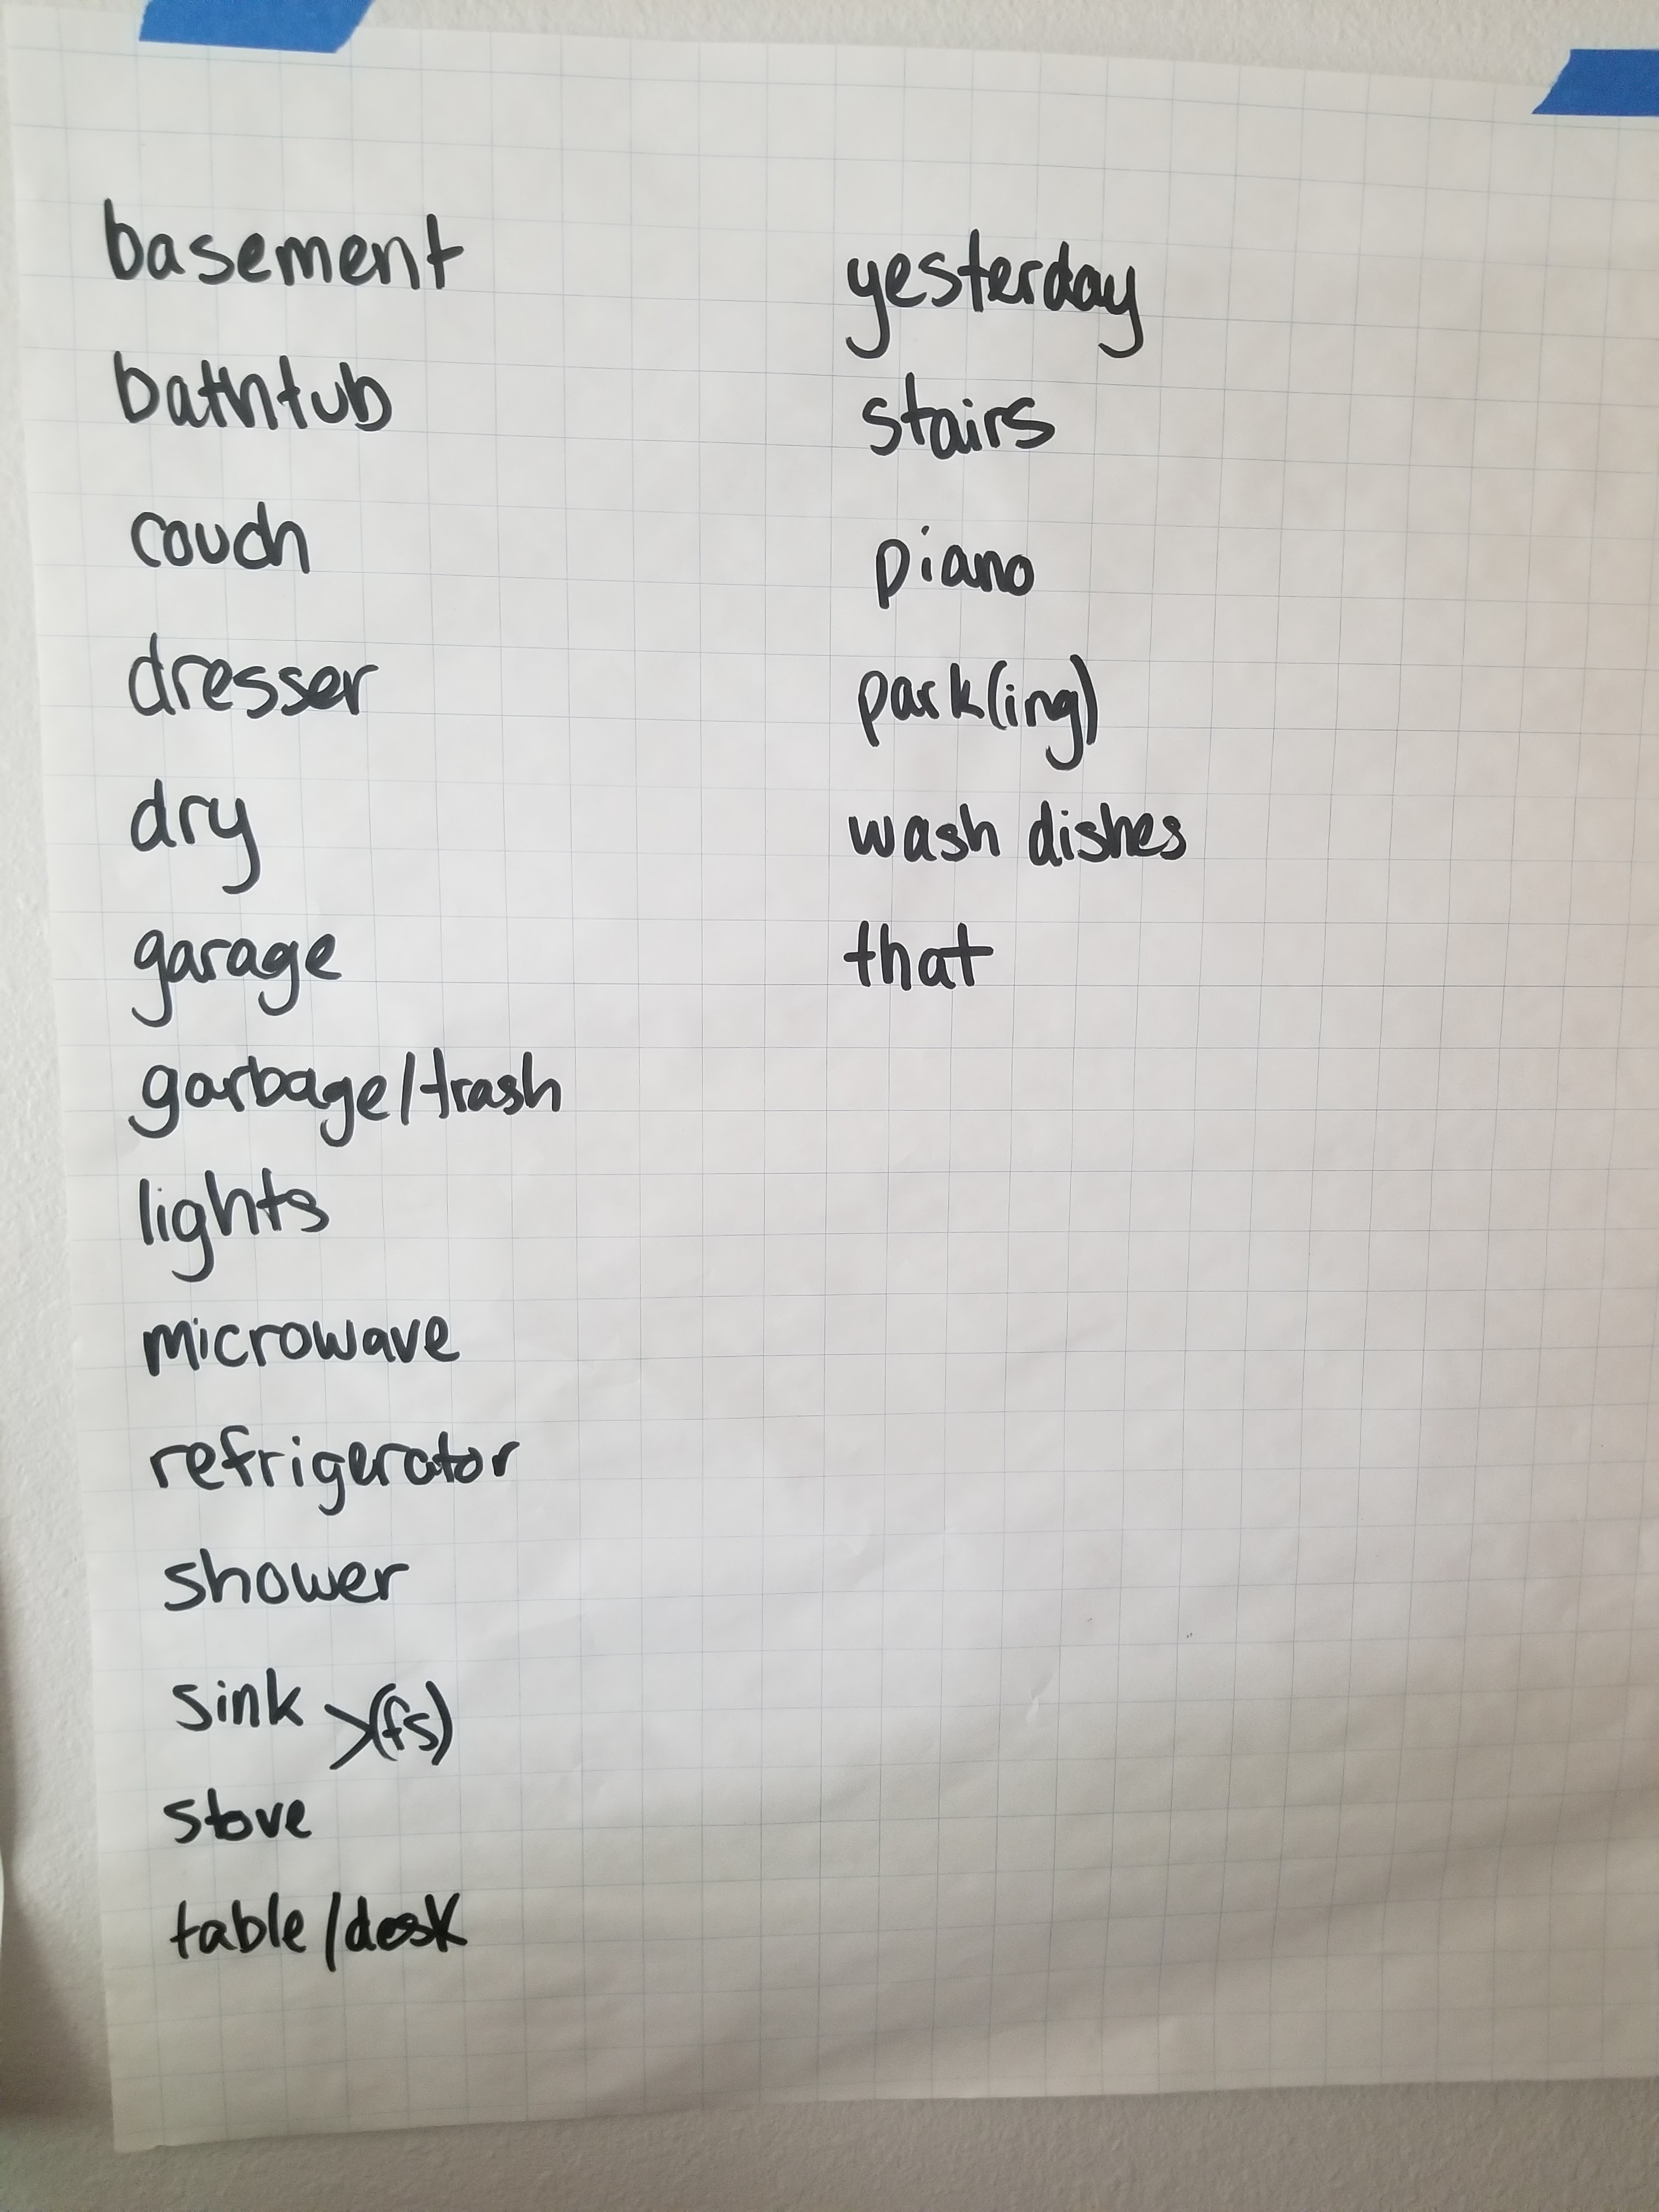 basement
bathtub
couch
dresser
dry
garage
garbage/trash
lights
microwave
refrigerator
shower
sink >(fs)
stove
table/desk
yesterday
stairs
piano
park(ing)
wash dishes
that